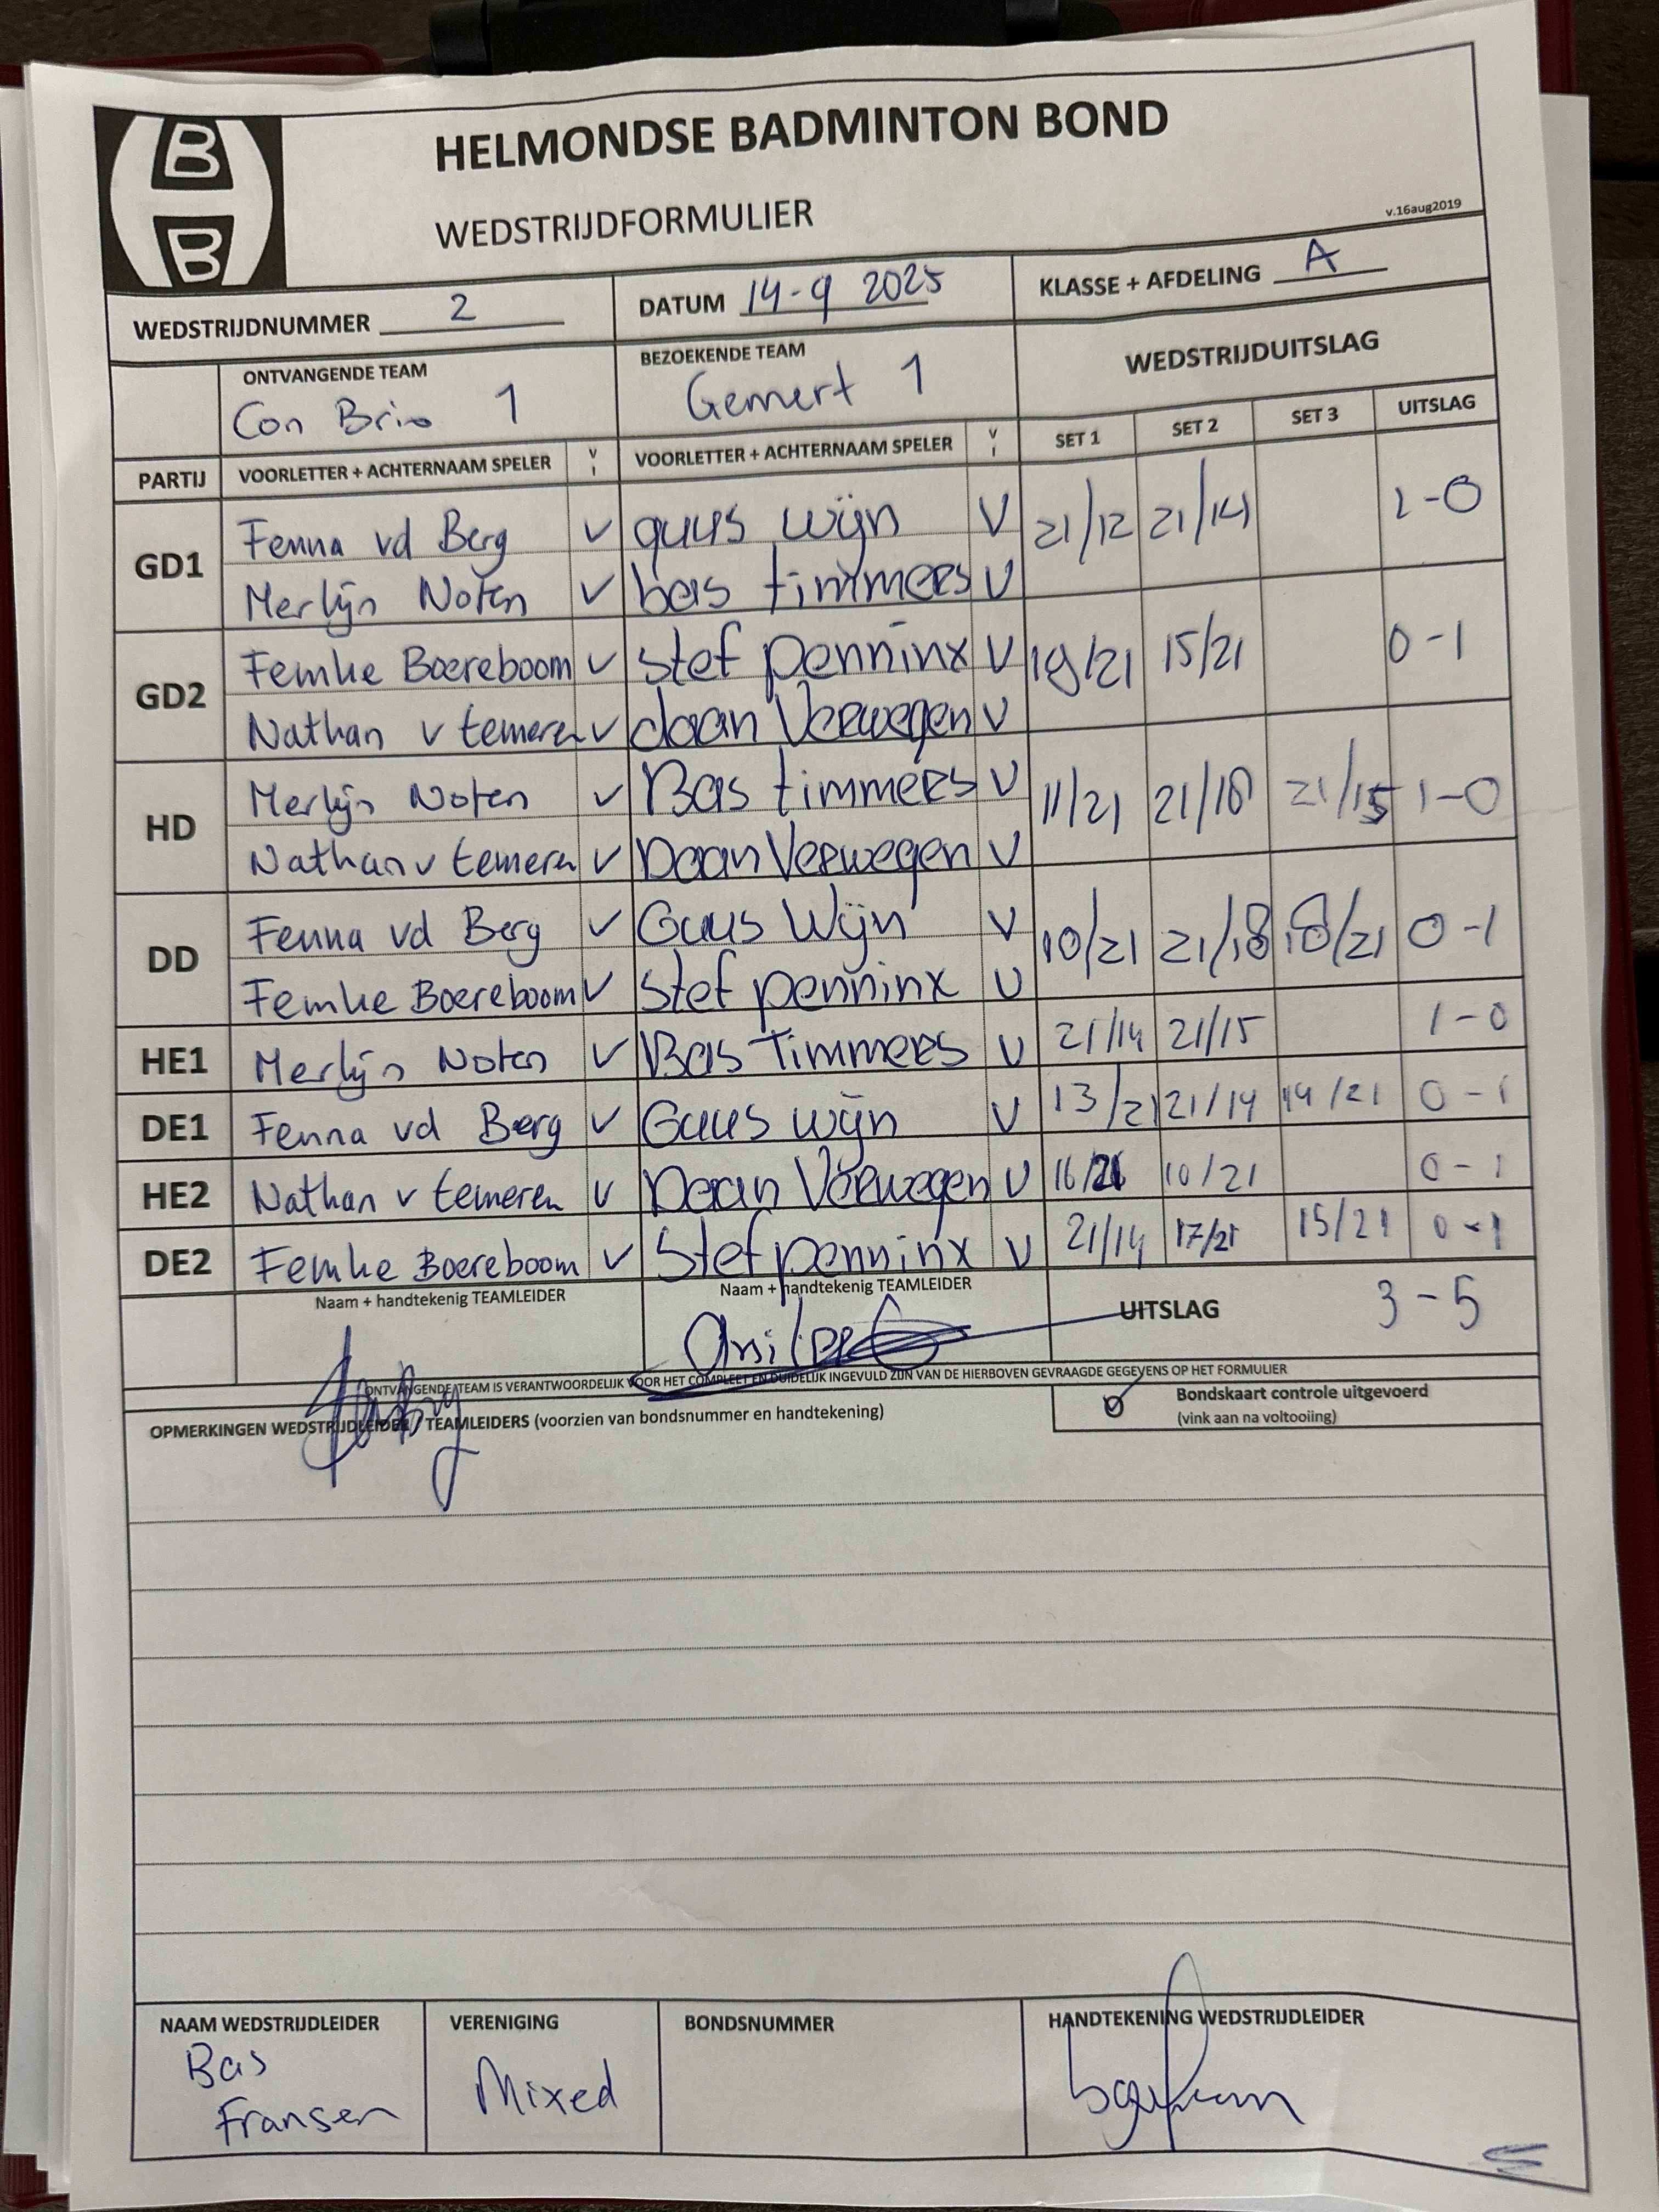 B
B
HELMONDSE BADMINTON BOND
WEDSTRIJDFORMULIER
v.16aug2019
WEDSTRIJDNUMMER 2 DATUM 14-9 2025 KLASSE + AFDELING A
ONTVANGENDE TEAM BEZOEKENDE TEAM WEDSTRIJDUITSLAG
Con Brio 1 Gemert 1
PARTIJ VOORLETTER + ACHTERNAAM SPELER V I VOORLETTER + ACHTERNAAM SPELER V I SET 1 SET 2 SET 3 UITSLAG
GD1 Fenna vd Berg V guus wijn V 21/12 21/14 -0
Merlijn Noten V bas timmers V
GD2 Femke Boereboom V Stef penninx V 19/21 15/21 0-1
Nathan v temeren V daan Verwegen V
HD Merlijn Noten V Bas timmers V 11/21 21/18 21/15 1-0
Nathan v temeren V Daan Verwegen V
DD Fenna vd Berg V Guus Wijn V 10/21 21/18 18/21 0-1
Femke Boereboom V Stef penninx V
HE1 Merlijn Noten V Bas Timmers V 21/14 21/15 1-0
DE1 Fenna vd Berg V Guus wijn V 13/21 21/14 14/21 0-1
HE2 Nathan v temeren V Daan Verwegen V 16/21 10/21 0-1
DE2 Femke Boereboom V Stef penninx V 21/14 17/21 15/21 0-1
Naam + handtekenig TEAMLEIDER Naam + handtekenig TEAMLEIDER UITSLAG 3-5
ONTVANGENDE TEAM IS VERANTWOORDELIJK VOOR HET COMPLEET EN DUIDELIJK INGEVULD ZIJN VAN DE HIERBOVEN GEVRAAGDE GEGEVENS OP HET FORMULIER
OPMERKINGEN WEDSTRIJDLEIDER / TEAMLEIDERS (voorzien van bondsnummer en handtekening)
Bondskaart controle uitgevoerd
(vink aan na voltooiing)
NAAM WEDSTRIJDLEIDER VERENIGING BONDSNUMMER HANDTEKENING WEDSTRIJDLEIDER
Bas
Fransen Mixed